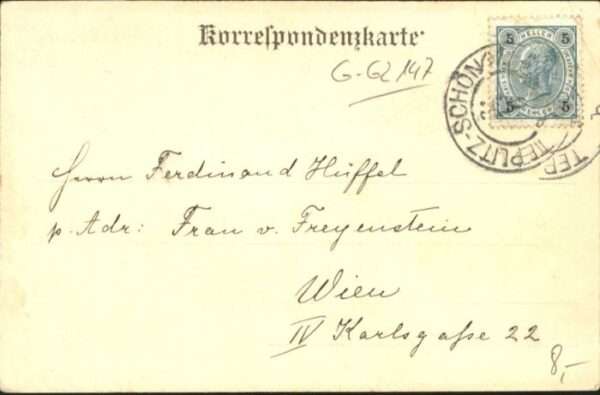 Korrespondenzkarte
G-Q 147
5 HELLER 5
5 5
TEPLITZ-SCHÖNAU
TEPLITZ
Herrn Ferdinand Hüffel
p. Adr: Frau v. Freyenstein
Wien
IV Karlsgaße 22
8,-